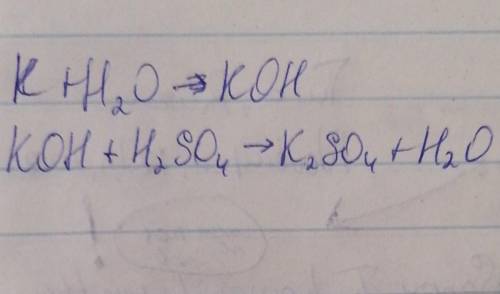 K + H₂O → KOH
KOH + H₂SO₄ → K₂SO₄ + H₂O